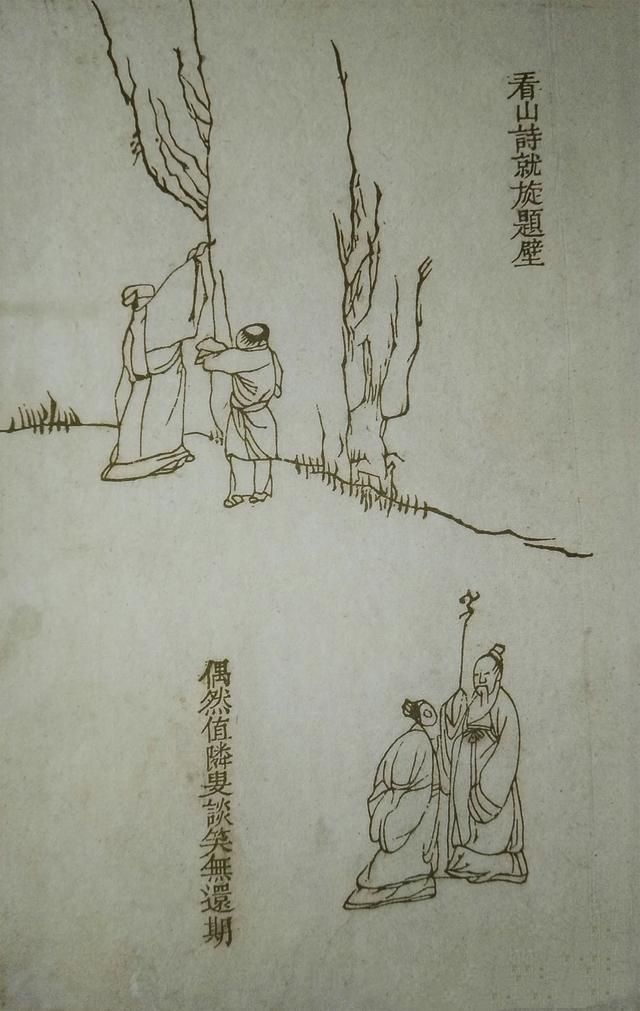 看山詩就旋題壁
偶然值隣叟談笑無還期